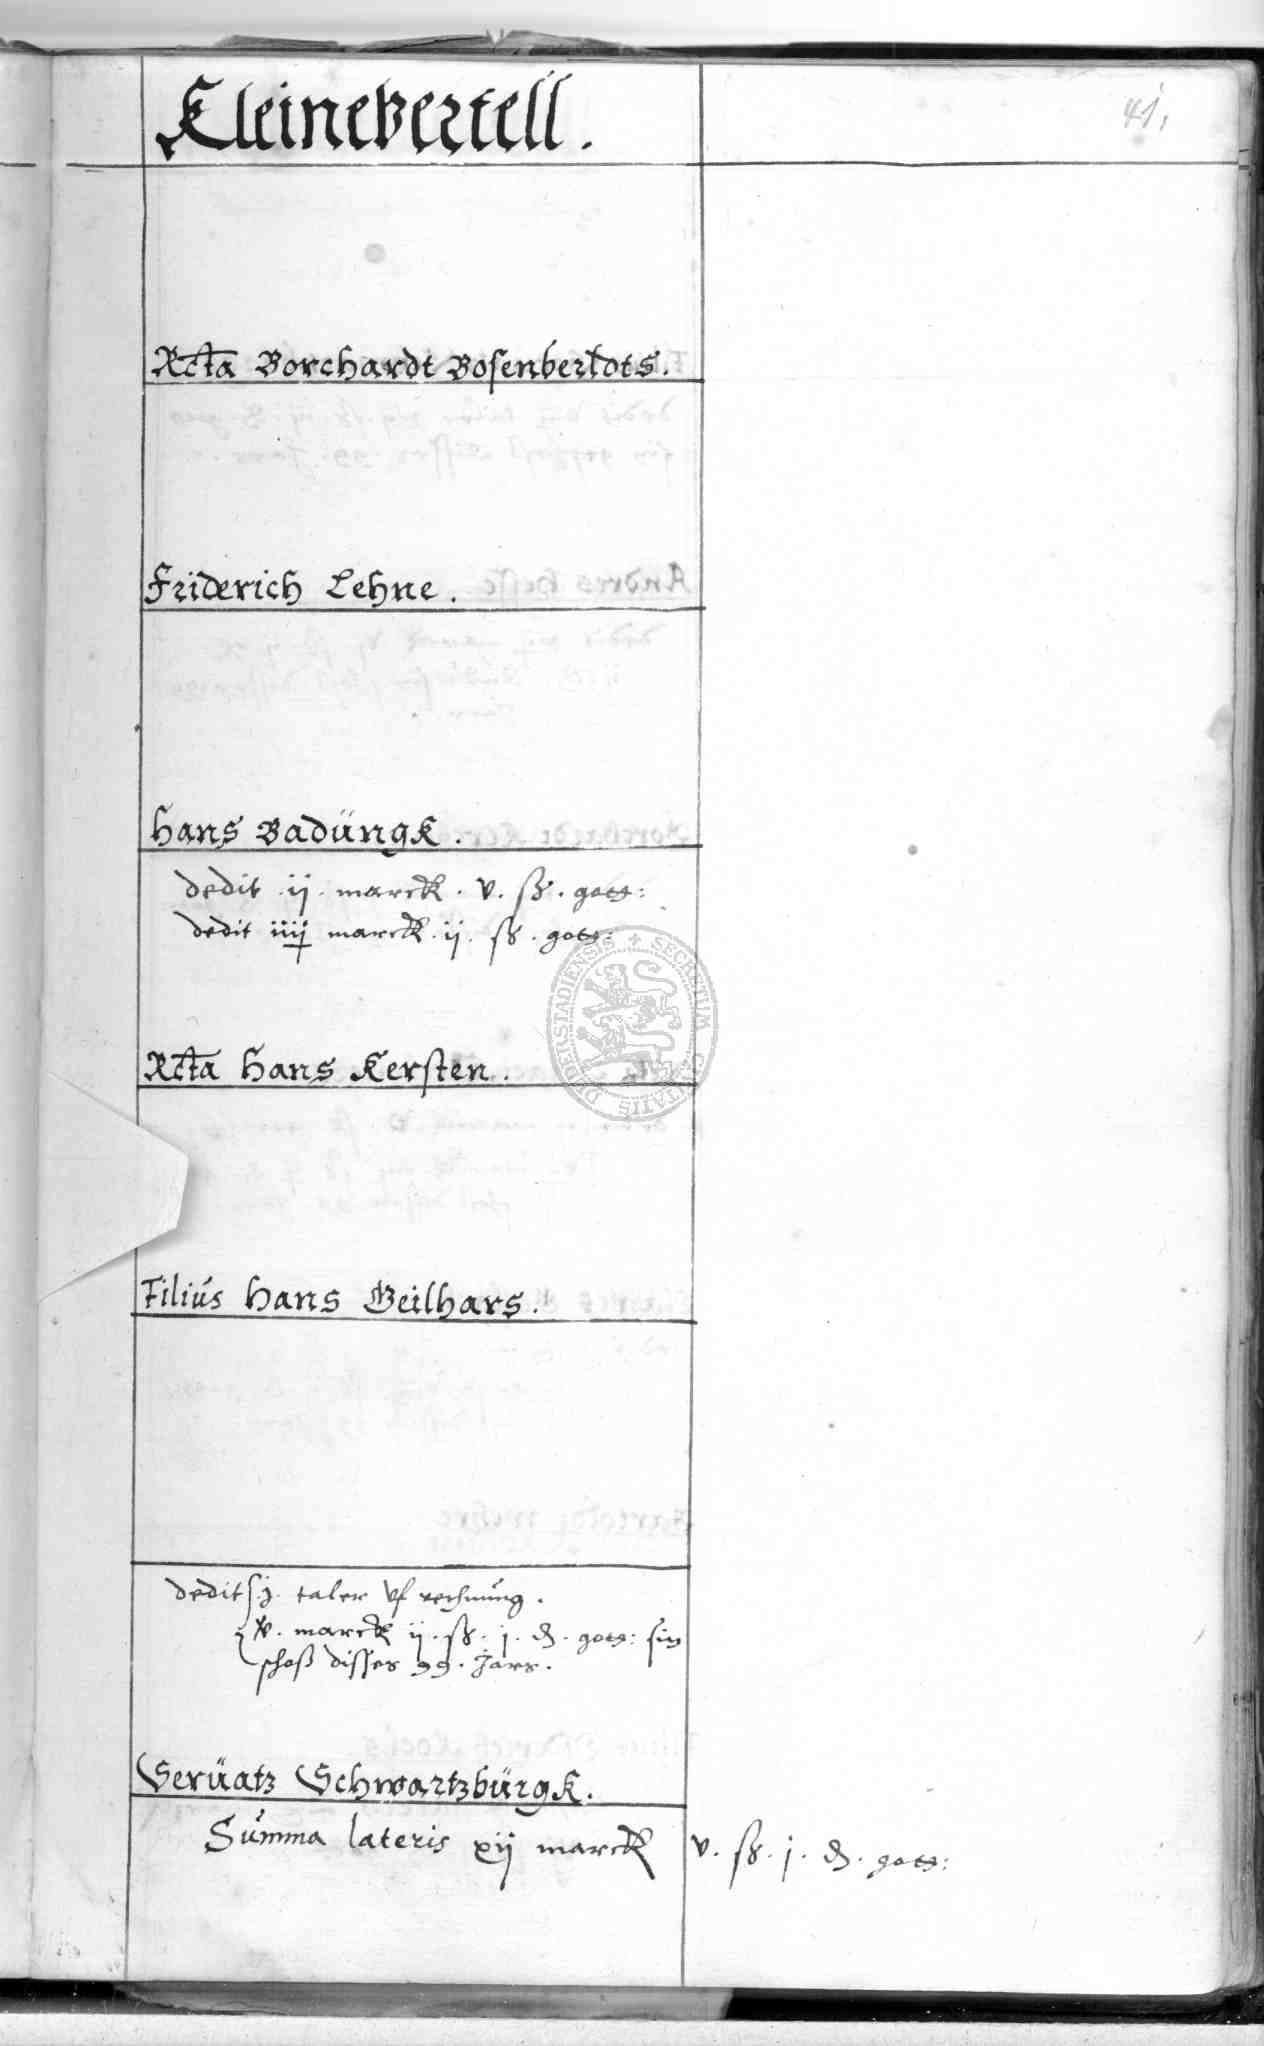 Kleinevertell.
41.
Rcta Borchardt Bosenberdots.
Friderich Lehne.
Hans Badüngk.
dedit ij. marck. v. ß. gots:
dedit iiij marck. ij. ß. gots:
SECRETUM CIVITATIS DUDERSTADIENSIS
Rcta Hans Kersten.
Filiús Hans Geilhars.
dedit j. taler vf rechnúng.
v. marck ij. ß. j. d. gots: sin
schoß disses 99. Jars.
Serüatz Schwartzbürgk.
Súmma lateris xij marck v. ß. j. d. gots: